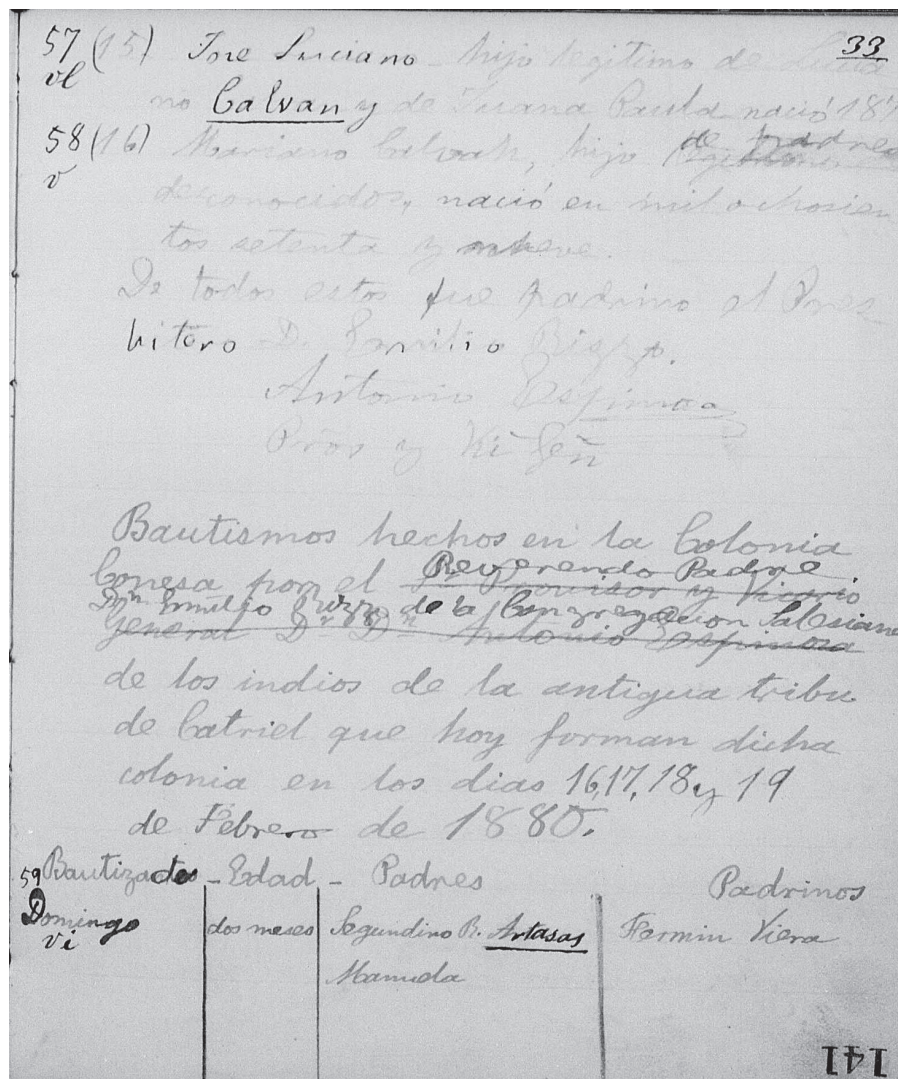 33
57 (15) Jose Luciano - hijo legitimo de Lucia
vl
no Galvan y de Juana Paula nació 187
58 (16) Mariano Galvan, hijo de padres
v
desconocidos, nació en mil ochosien
tos setenta y nueve.
De todos estos fue padrino el Pres
bitero D. Emilio Rizzo.
Antonio Espinosa
y Vic Gen
Bautismos hechos en la Colonia
Reverendo Padre
Conesa por el Provisor y Vicario
Dn Emilio Rizzo de la Congregacion Salesiana
General Dr Dn Antonio Espinosa
de los indios de la antigua tribu
de Catriel que hoy forman dicha
colonia en los dias 16, 17, 18 y 19
de Febrero de 1880.
59 Bautizados - Edad - Padres Padrinos
Domingo dos meses Segundino R. Artasas Fermin Viera
vi
Manuela
141